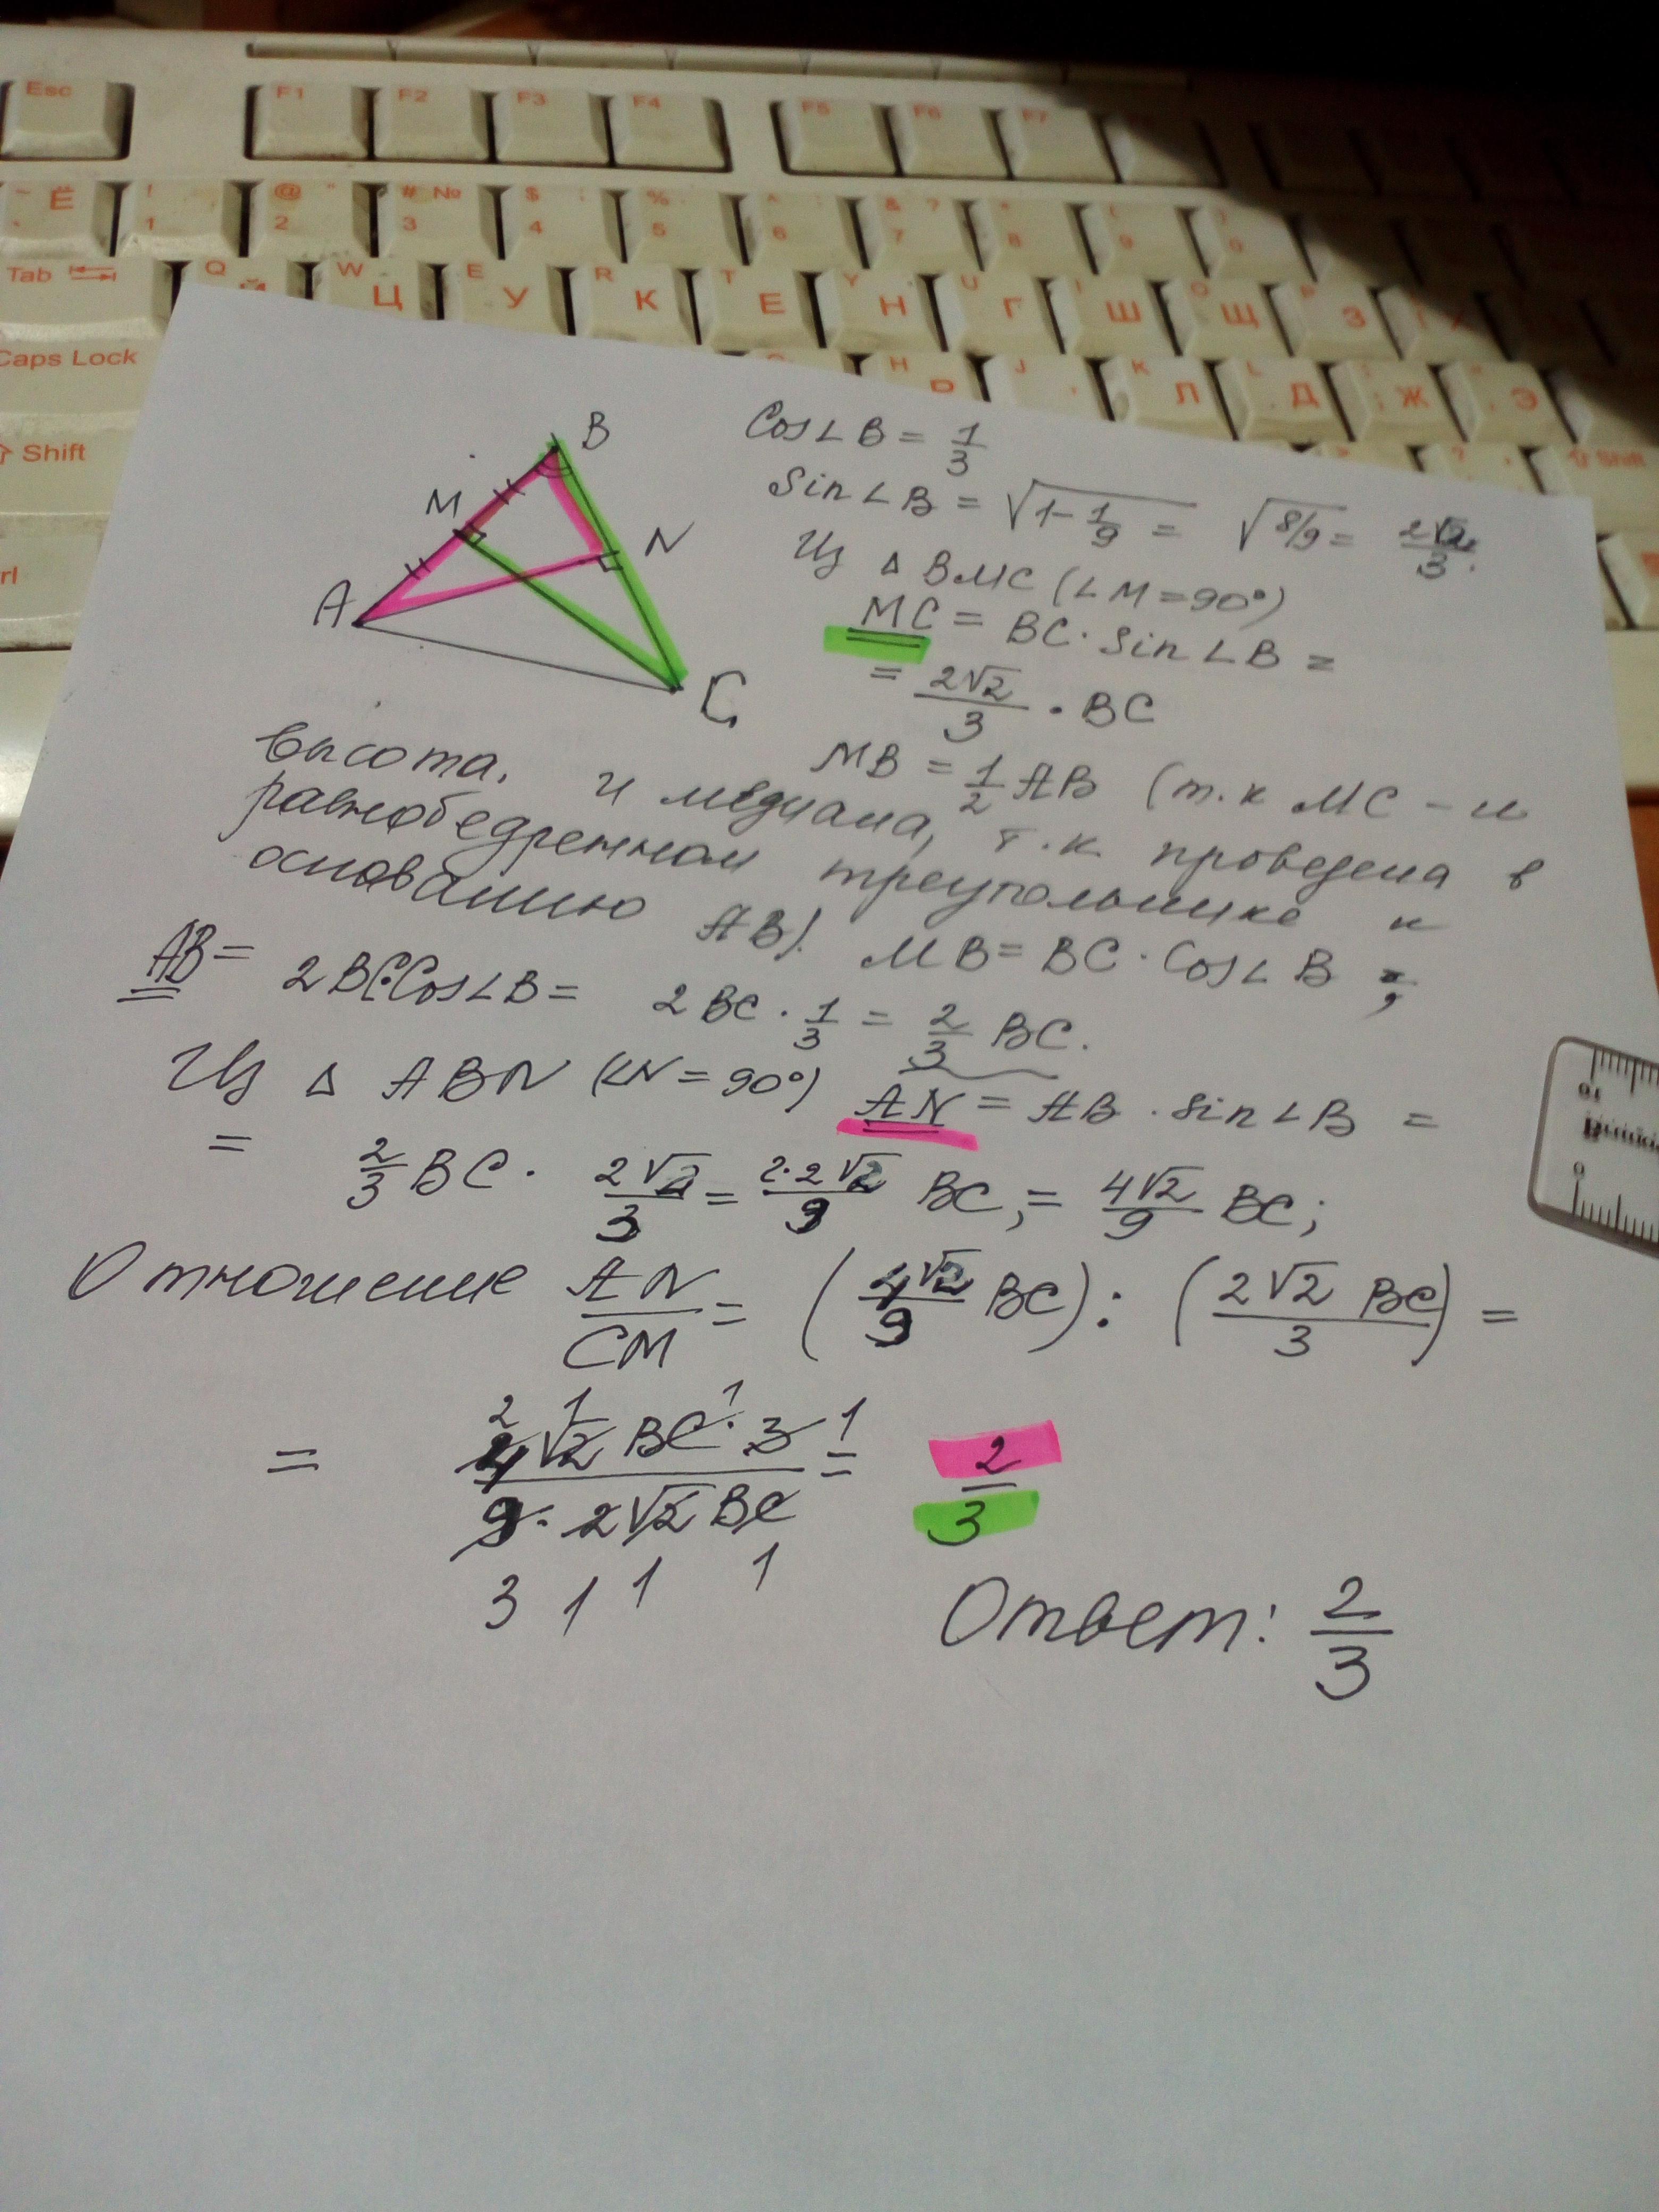 Esc F1 F2 F3 F4 F5 F6 F7
~ Ё ! 1 @ " 2 # № 3 $ ; 4 % 5 ^ : 6 & ? 7 * 8 ( 9 ) 0
Tab Q Й W Ц E У R К T Е Y Н U Г I Ш O Щ P З
Caps Lock H J K Л L Д ; Ж " Э
Shift
Shift
rl
B
M
N
A
C
Cos∠B = 1/3
Sin∠B = √(1-1/9) = √(8/9) = 2√2/3.
Из △ BMC (∠M=90°)
MC = BC · Sin∠B =
= 2√2/3 · BC
MB = 1/2 AB (т.к MC – и
высота, и медиана, т.к. проведена в
равнобедренном треугольнике к
основанию AB). MB = BC · Cos∠B ;
AB = 2BC·Cos∠B = 2BC · 1/3 = 2/3 BC.
Из △ ABN (∠N=90°) AN = AB · Sin∠B =
= 2/3 BC · 2√2/3 = 2·2√2/9 BC, = 4√2/9 BC;
Отношение AN/CM = (4√2/9 BC) : (2√2 BC/3) =
2 1 1 1
= 4√2 BC · 3 / 9 · 2√2 BC = 2/3
3 1 1 1
Ответ: 2/3
0